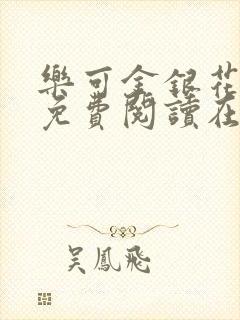 樂可金銀花
免費閱讀在
吳鳳飛